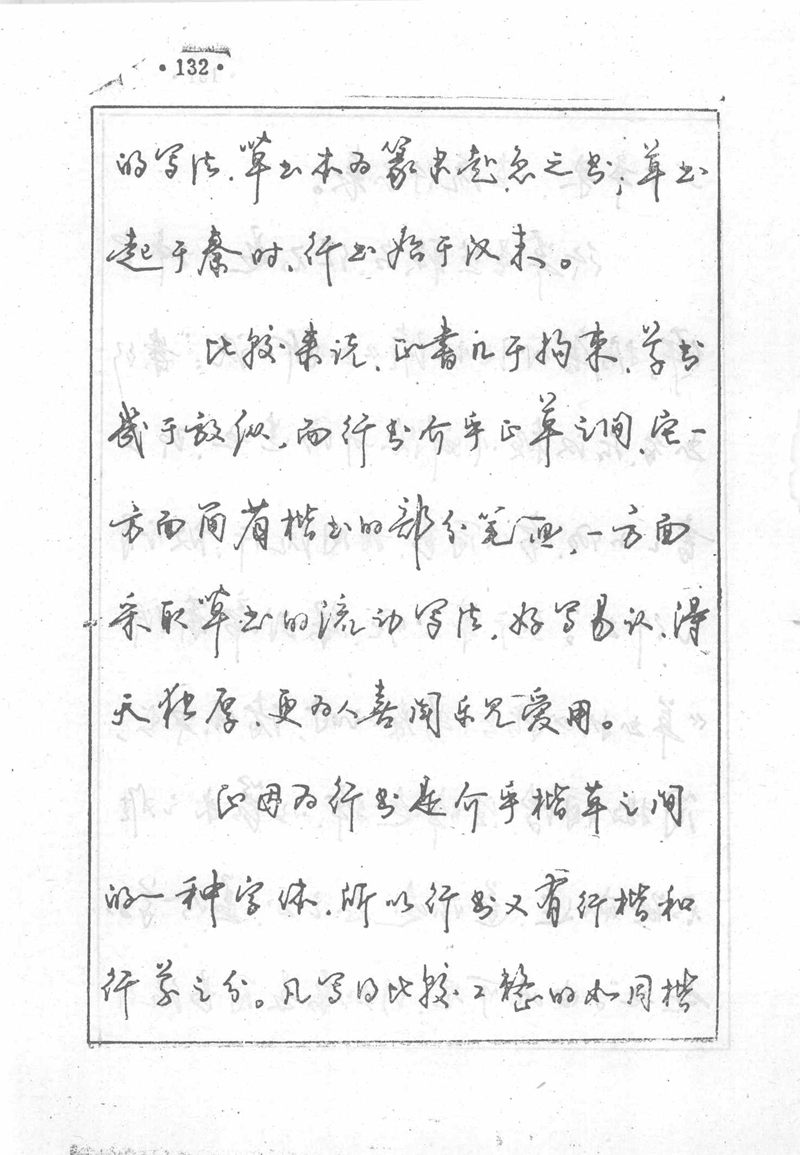 ·132·
的写法，草书本为篆隶赴急之书；草书
起于秦时，行书始于汉末。
比较来说，正书几于拘束，草书
几于放纵，而行书介乎正草之间，它一
方面简省楷书的部分笔画，一方面
采取草书的流动写法，好写易认，得
天独厚，更为人喜闻乐见爱用。
正因为行书是介乎楷草之间
的一种字体，所以行书又有行楷和
行草之分。凡写得比较工整的如同楷